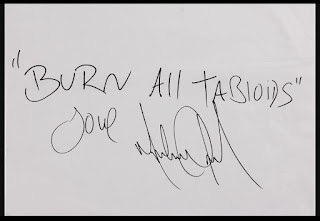 "BURN All TABlOiDS"
Love